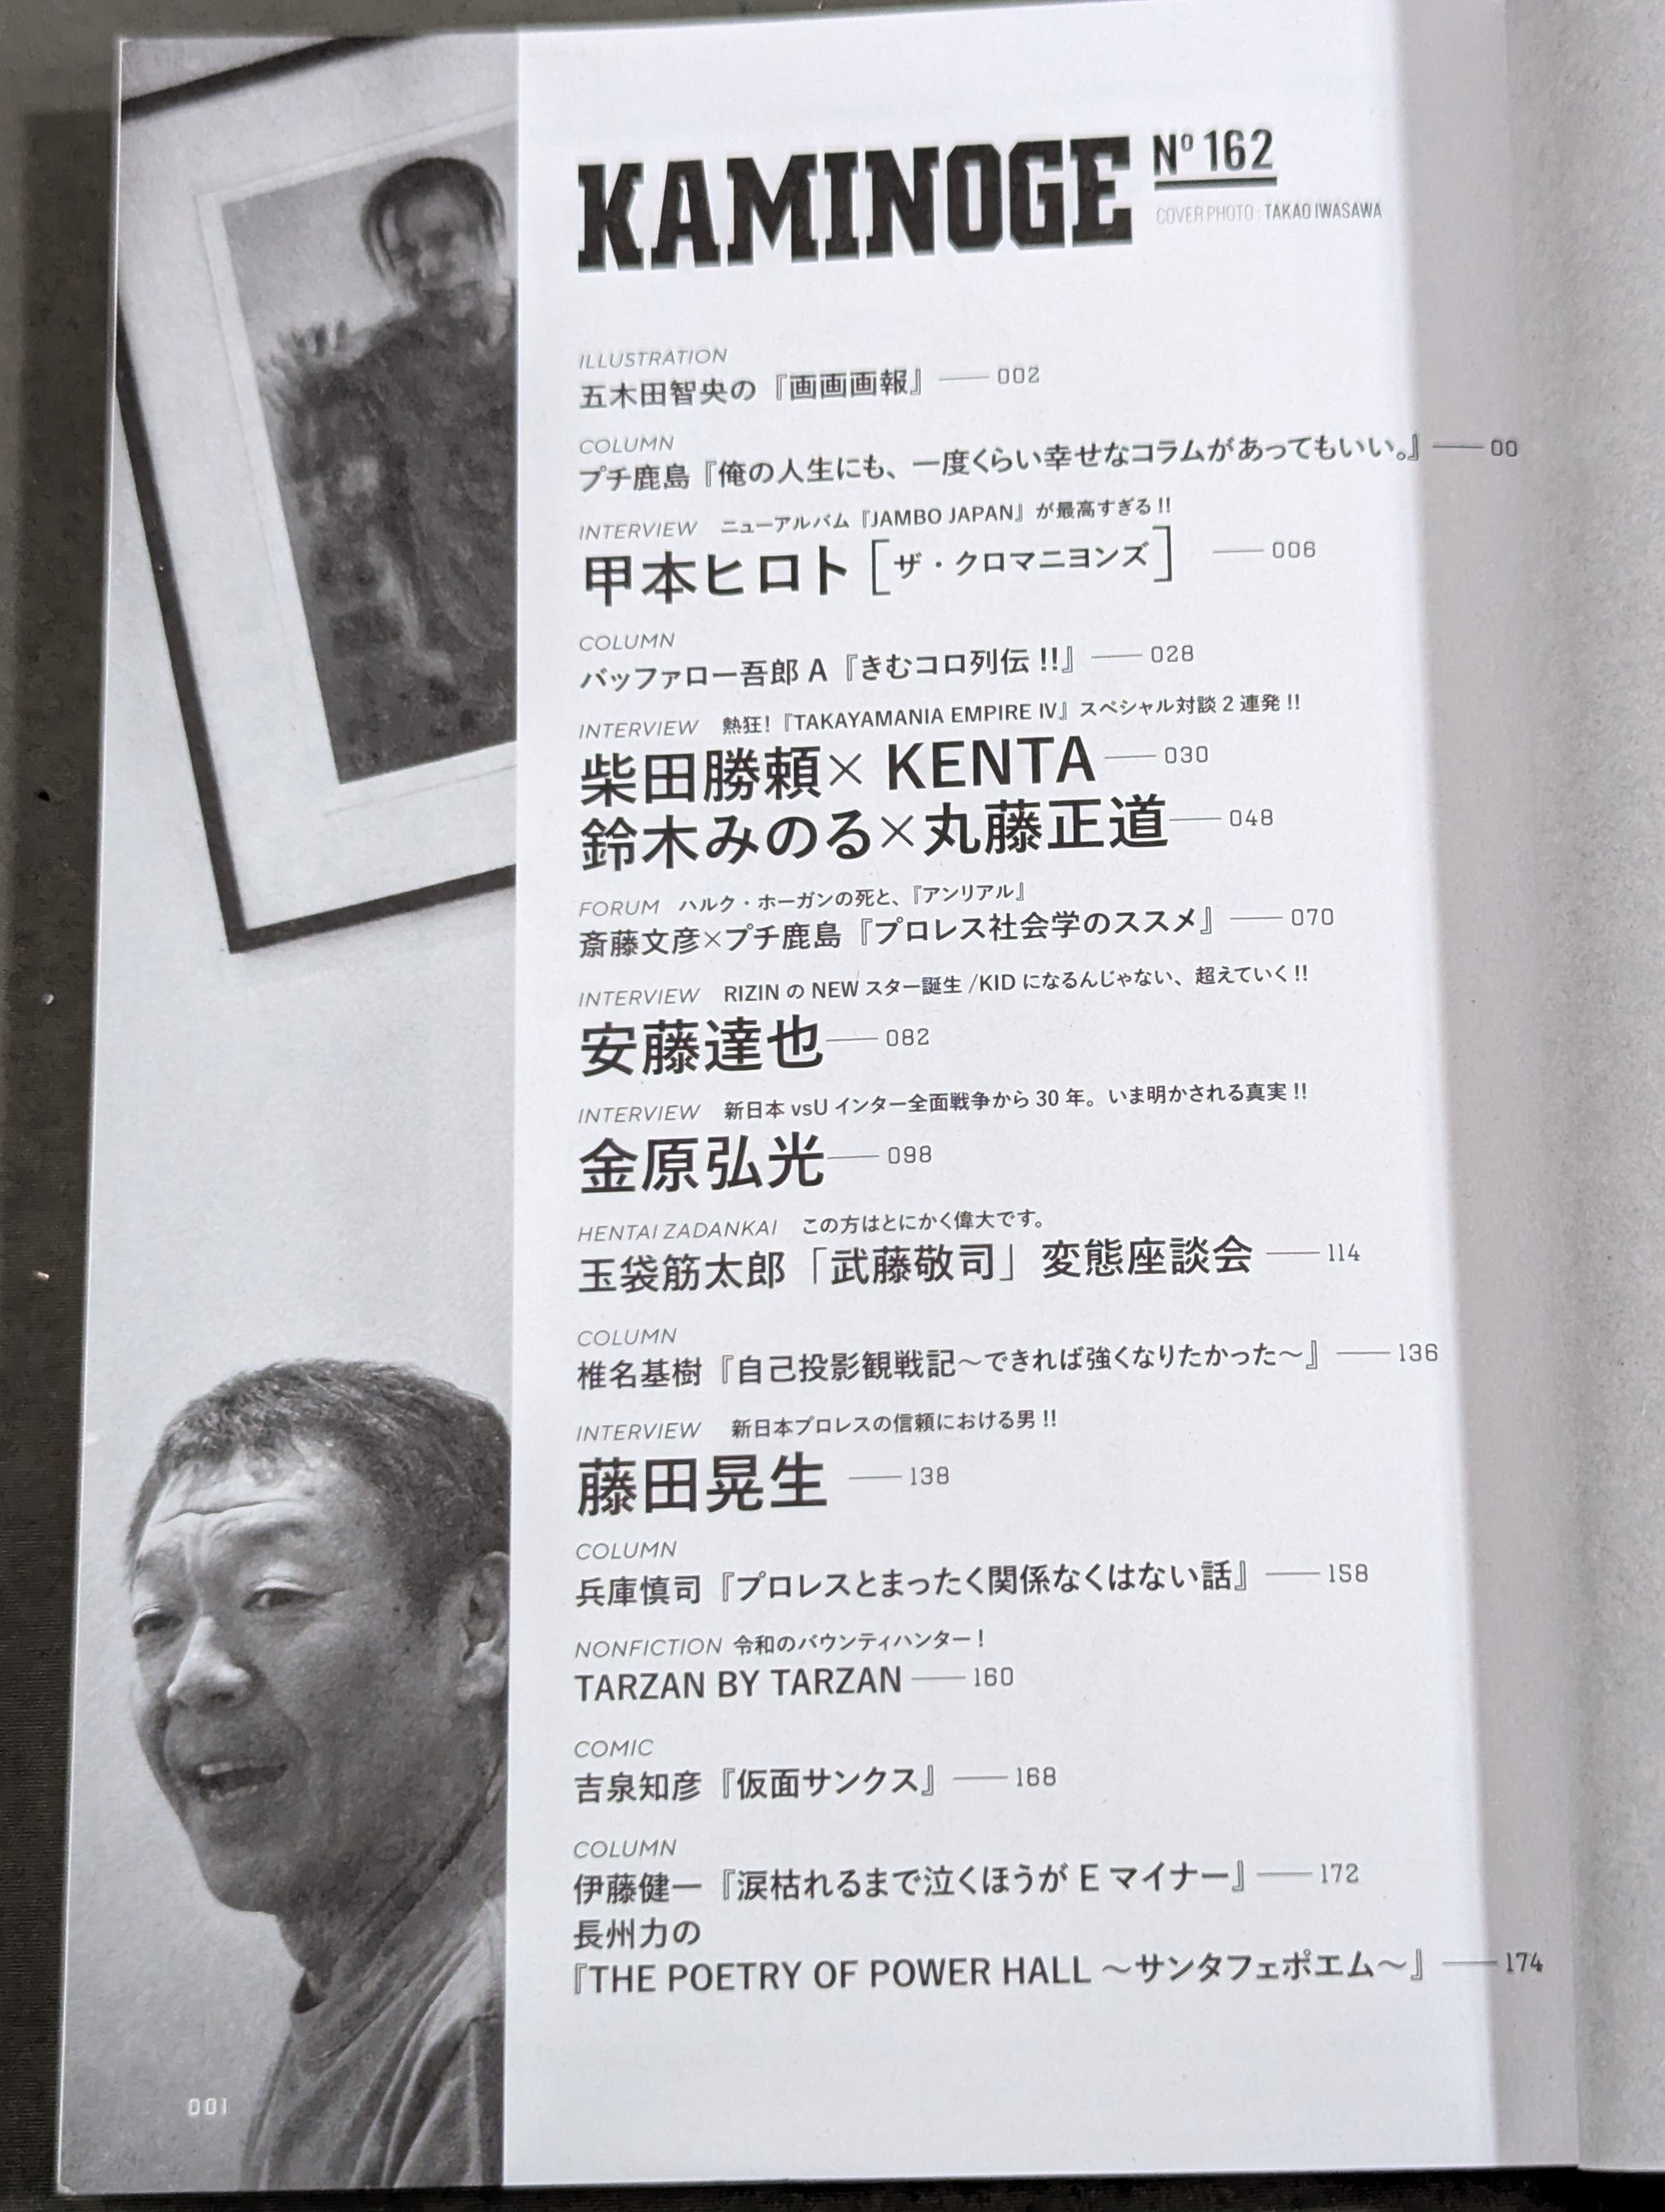 KAMINOGE Nº 162
COVER PHOTO : TAKAO IWASAWA
ILLUSTRATION
五木田智央の『画画画報』 —— 002
COLUMN
プチ鹿島『俺の人生にも、一度くらい幸せなコラムがあってもいい。』 —— 00
INTERVIEW ニューアルバム『JAMBO JAPAN』が最高すぎる!!
甲本ヒロト[ザ・クロマニヨンズ] —— 006
COLUMN
バッファロー吾郎 A『きむコロ列伝!!』 —— 028
INTERVIEW 熱狂!『TAKAYAMANIA EMPIRE Ⅳ』スペシャル対談2連発!!
柴田勝頼×KENTA —— 030
鈴木みのる×丸藤正道 —— 048
FORUM ハルク・ホーガンの死と、『アンリアル』
斎藤文彦×プチ鹿島『プロレス社会学のススメ』 —— 070
INTERVIEW RIZINのNEWスター誕生/KIDになるんじゃない、超えていく!!
安藤達也 —— 082
INTERVIEW 新日本vsUインター全面戦争から30年。いま明かされる真実!!
金原弘光 —— 098
HENTAI ZADANKAI この方はとにかく偉大です。
玉袋筋太郎「武藤敬司」変態座談会 —— 114
COLUMN
椎名基樹『自己投影観戦記〜できれば強くなりたかった〜』 —— 136
INTERVIEW 新日本プロレスの信頼における男!!
藤田晃生 —— 138
COLUMN
兵庫慎司『プロレスとまったく関係なくはない話』 —— 158
NONFICTION 令和のバウンティハンター!
TARZAN BY TARZAN —— 160
COMIC
吉泉知彦『仮面サンクス』 —— 168
COLUMN
伊藤健一『涙枯れるまで泣くほうがEマイナー』 —— 172
長州力の
『THE POETRY OF POWER HALL 〜サンタフェポエム〜』 —— 174
001